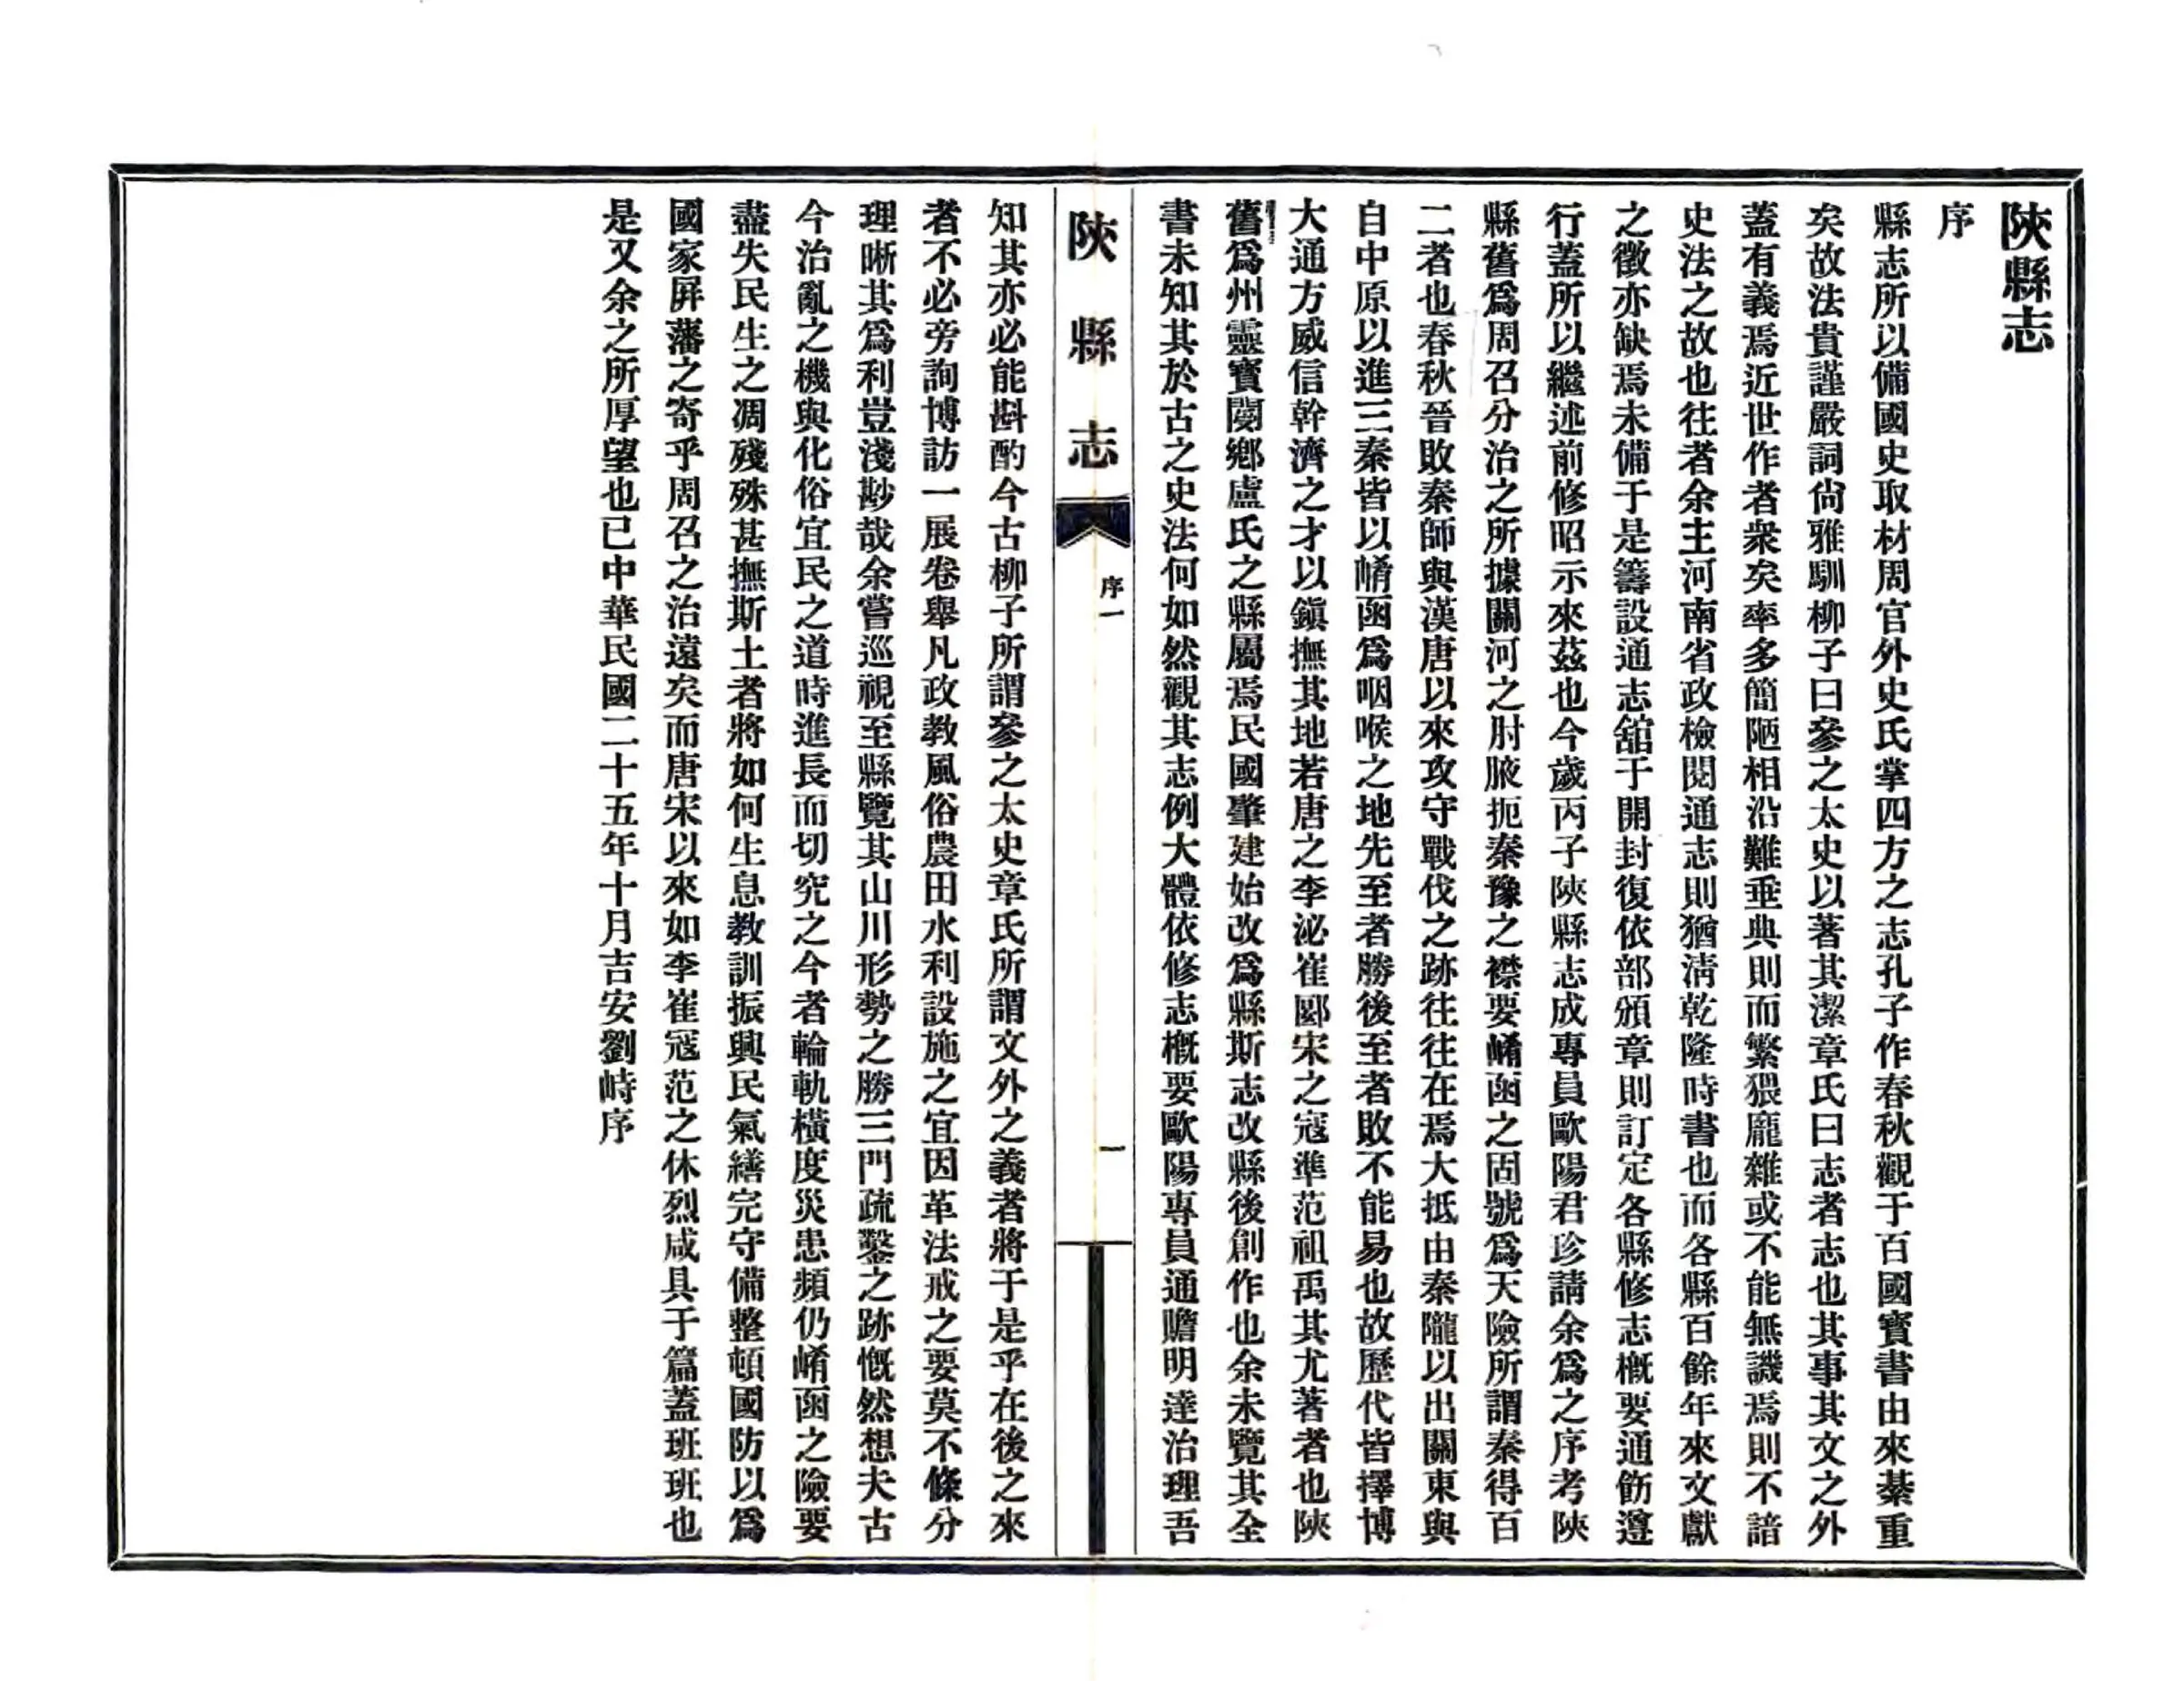 陝縣志
序
縣志所以備國史取材周官外史氏掌四方之志孔子作春秋觀于百國寶書由來綦重
矣故法貴謹嚴詞尙雅馴柳子曰參之太史以著其潔章氏曰志者志也其事其文之外
蓋有義焉近世作者衆矣率多簡陋相沿難垂典則而繁猥龐雜或不能無譏焉則不諳
史法之故也往者余主河南省政檢閱通志則猶淸乾隆時書也而各縣百餘年來文獻
之徵亦缺焉未備于是籌設通志舘于開封復依部頒章則訂定各縣修志槪要通飭遵
行蓋所以繼述前修昭示來茲也今歲丙子陝縣志成專員歐陽君珍請余爲之序考陝
縣舊爲周召分治之所據關河之肘腋扼秦豫之襟要崤函之固號爲天險所謂秦得百
二者也春秋晉敗秦師與漢唐以來攻守戰伐之跡往往在焉大抵由秦隴以出關東與
自中原以進三秦皆以崤函爲咽喉之地先至者勝後至者敗不能易也故歷代皆擇博
大通方威信幹濟之才以鎭撫其地若唐之李泌崔郾宋之寇準范祖禹其尤著者也陝
舊爲州靈寶閿鄕盧氏之縣屬焉民國肇建始改爲縣斯志改縣後創作也余未覽其全
書未知其於古之史法何如然觀其志例大體依修志槪要歐陽專員通贍明達治理吾
陝縣志
序一
一
知其亦必能斟酌今古柳子所謂參之太史章氏所謂文外之義者將于是乎在後之來
者不必旁詢博訪一展卷舉凡政教風俗農田水利設施之宜因革法戒之要莫不條分
理晰其爲利豈淺尠哉余嘗巡視至縣覽其山川形勢之勝三門疏鑿之跡慨然想夫古
今治亂之機與化俗宜民之道時進長而切究之今者輪軌橫度災患頻仍崤函之險要
盡失民生之凋殘殊甚撫斯土者將如何生息教訓振興民氣繕完守備整頓國防以爲
國家屛藩之寄乎周召之治遠矣而唐宋以來如李崔寇范之休烈咸具于篇蓋班班也
是又余之所厚望也已中華民國二十五年十月吉安劉峙序